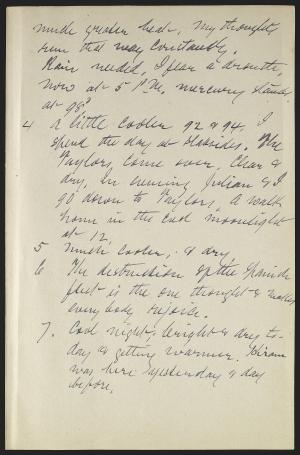 much greater heat. My thoughts
run that way constantly.
Rain needed, I fear a drouth,
now at 5 P.M. mercury stands
at 98°
4 A little cooler 92 & 94. I
spend the day at Slabsides. The
Taylors come over. Clear &
dry. In evening Julian & I
go down to Taylors, & walk
home in the cool moonlight
at 12.
5 Much cooler, & dry.
6 The destruction of the Spanish
fleet is the one thought & makes
everybody rejoice.
7. Cool night; bright & dry to-
day & getting warmer. Hiram
was here yesterday & day
before.